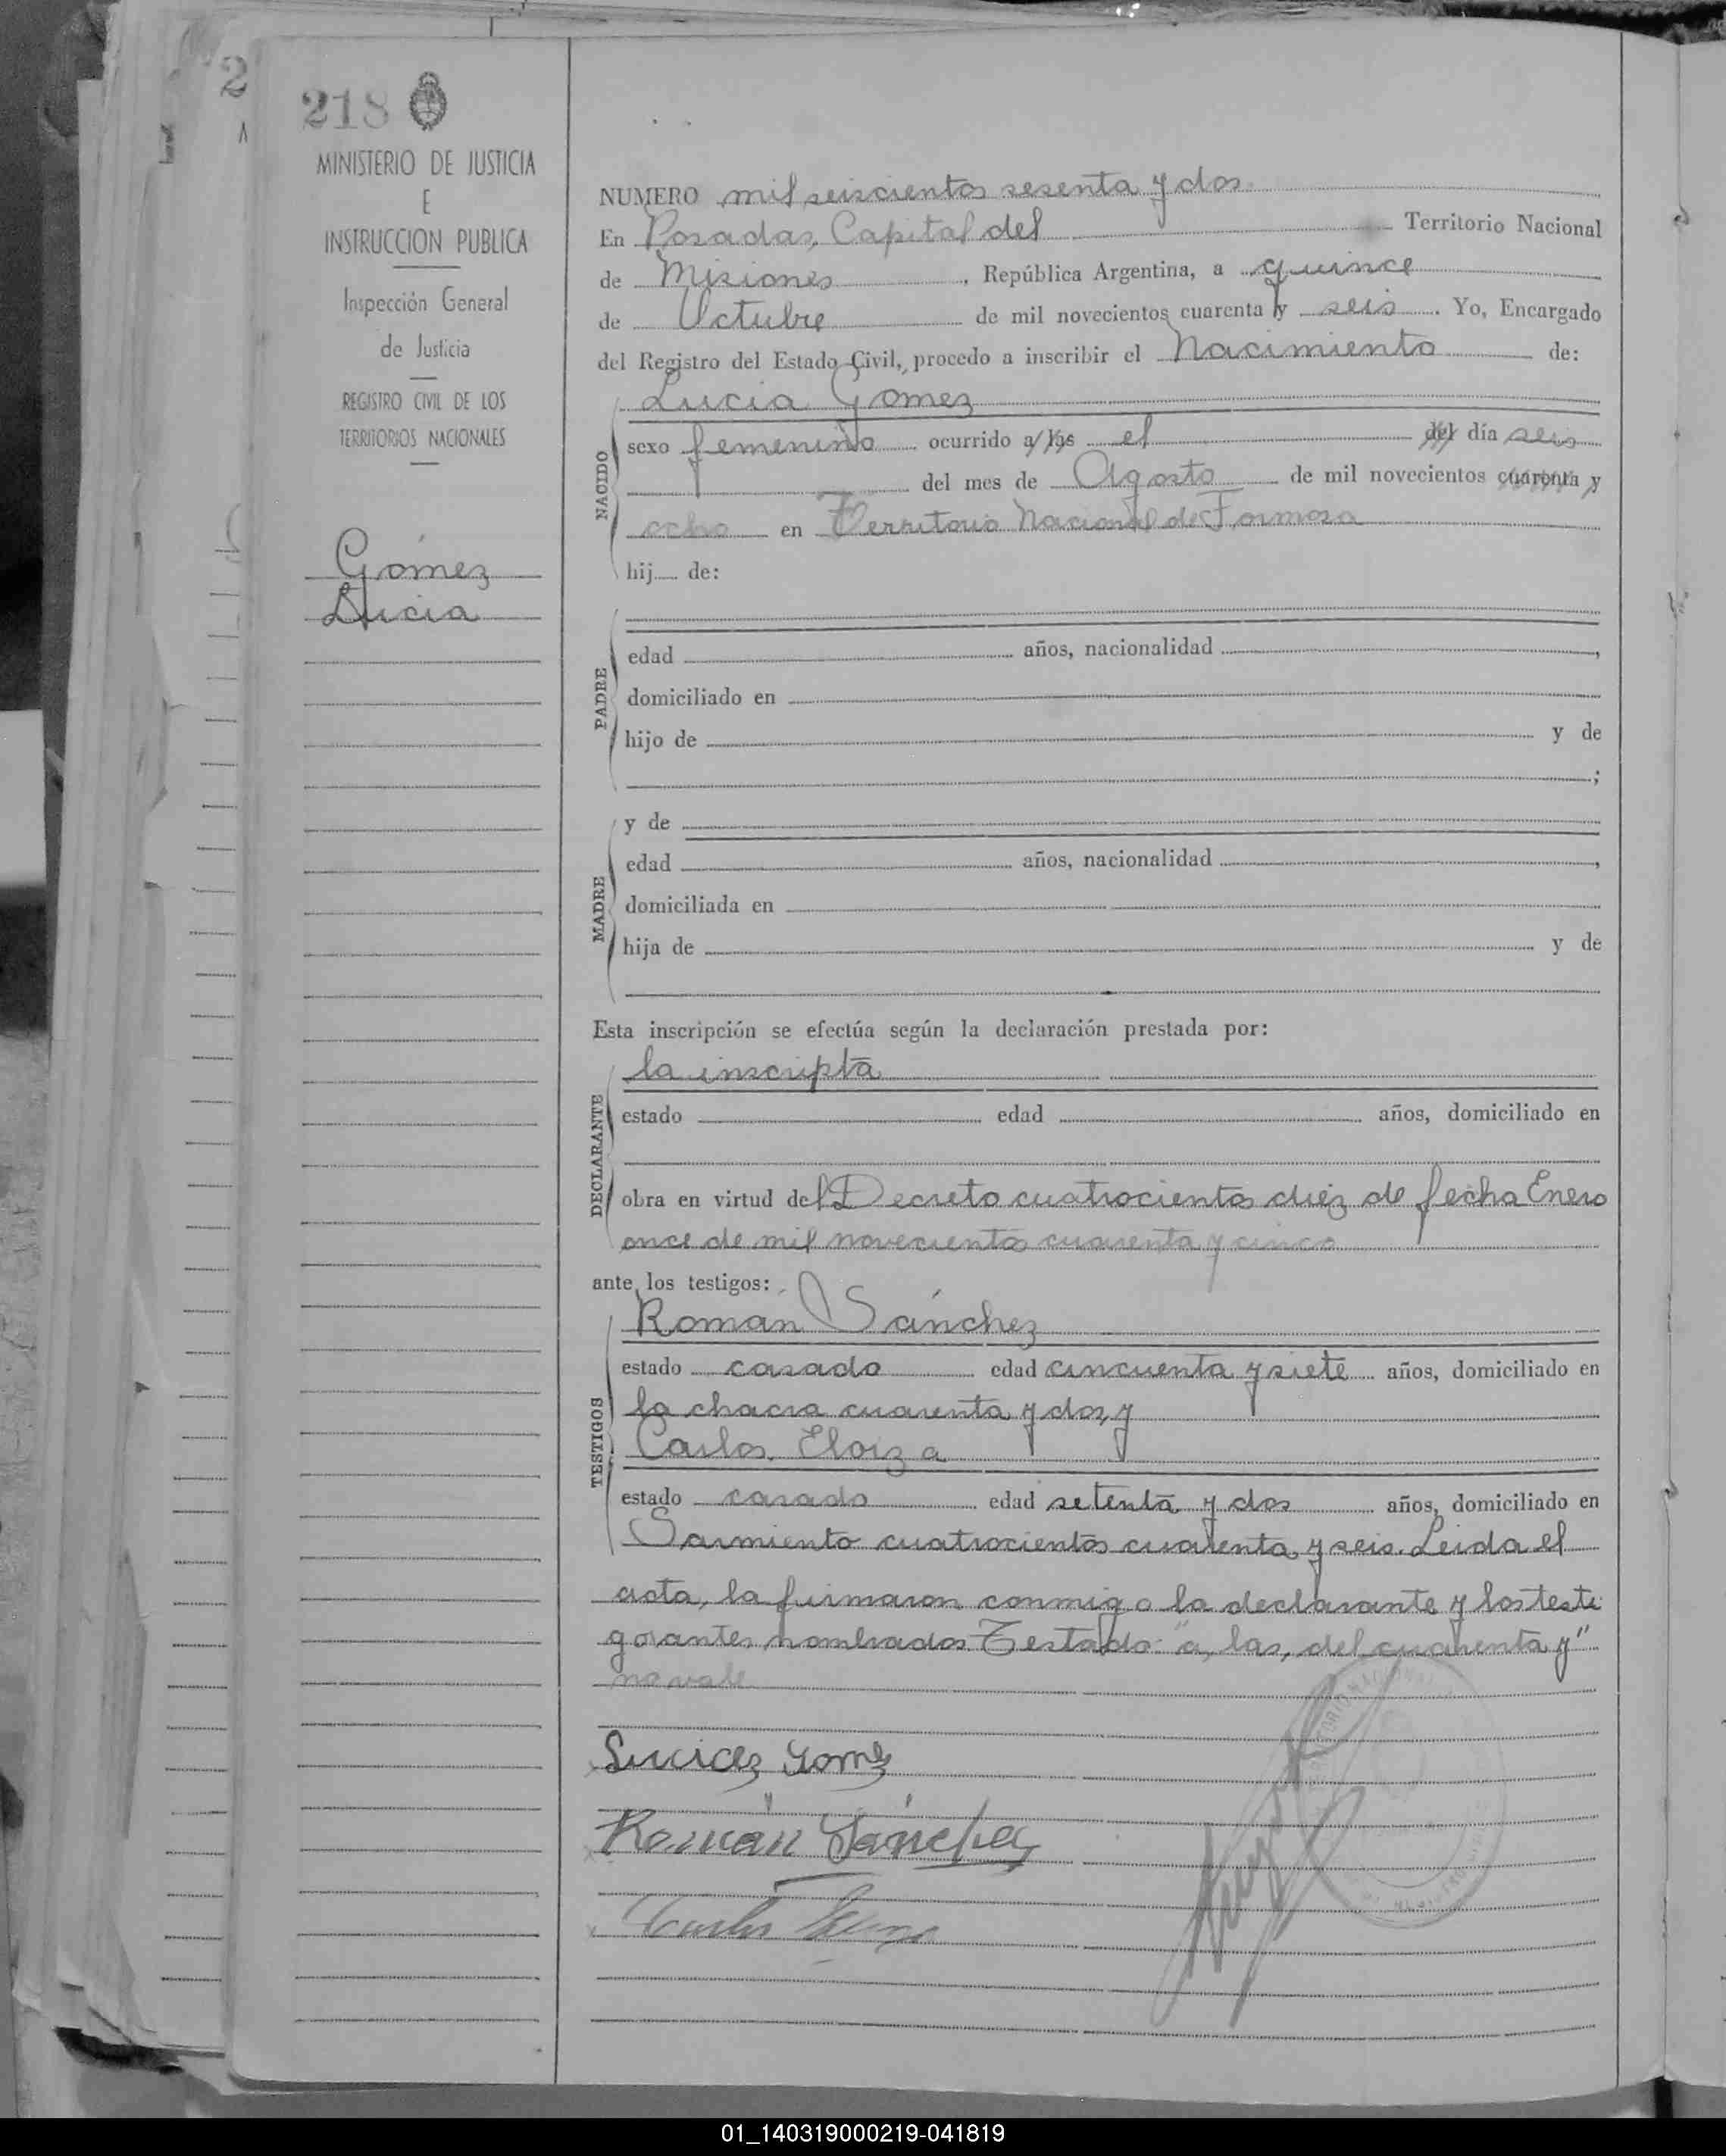 2
218
MINISTERIO DE JUSTICIA
E
INSTRUCCION PUBLICA
Inspección General
de Justicia
REGISTRO CIVIL DE LOS
TERRITORIOS NACIONALES
Gómez
Lucia
NUMERO mil seiscientos sesenta y dos
En Posadas, Capital del Territorio Nacional
de Misiones, República Argentina, a quince
de Octubre de mil novecientos cuarenta y seis. Yo, Encargado
del Registro del Estado Civil, procedo a inscribir el Nacimiento de:
NACIDO
Lucia Gomez
sexo femenino ocurrido a las el del día seis
del mes de Agosto de mil novecientos cuarenta y
ocho en Territorio Nacional de Formosa
hij de:
PADRE
edad años, nacionalidad ,
domiciliado en
hijo de y de
;
MADRE
y de
edad años, nacionalidad ,
domiciliada en
hija de y de
Esta inscripción se efectúa según la declaración prestada por:
DECLARANTE
la inscripta
estado edad años, domiciliado en
obra en virtud del Decreto cuatrocientos diez de fecha Enero
once de mil novecientos cuarenta y cinco
ante los testigos:
TESTIGOS
Román Sánchez
estado casado edad cincuenta y siete años, domiciliado en
la chacra cuarenta y dos, y
Carlos Eloiza
estado casado edad setenta y dos años, domiciliado en
Sarmiento cuatrocientos cuarenta y seis. Leida el
acta, la firmaron conmigo la declarante y los testi
gorantes nombrados Testado: "a, las, del cuarenta y"
no vale
Lucia Gomez
Román Sánchez
Carlos
01_140319000219-041819